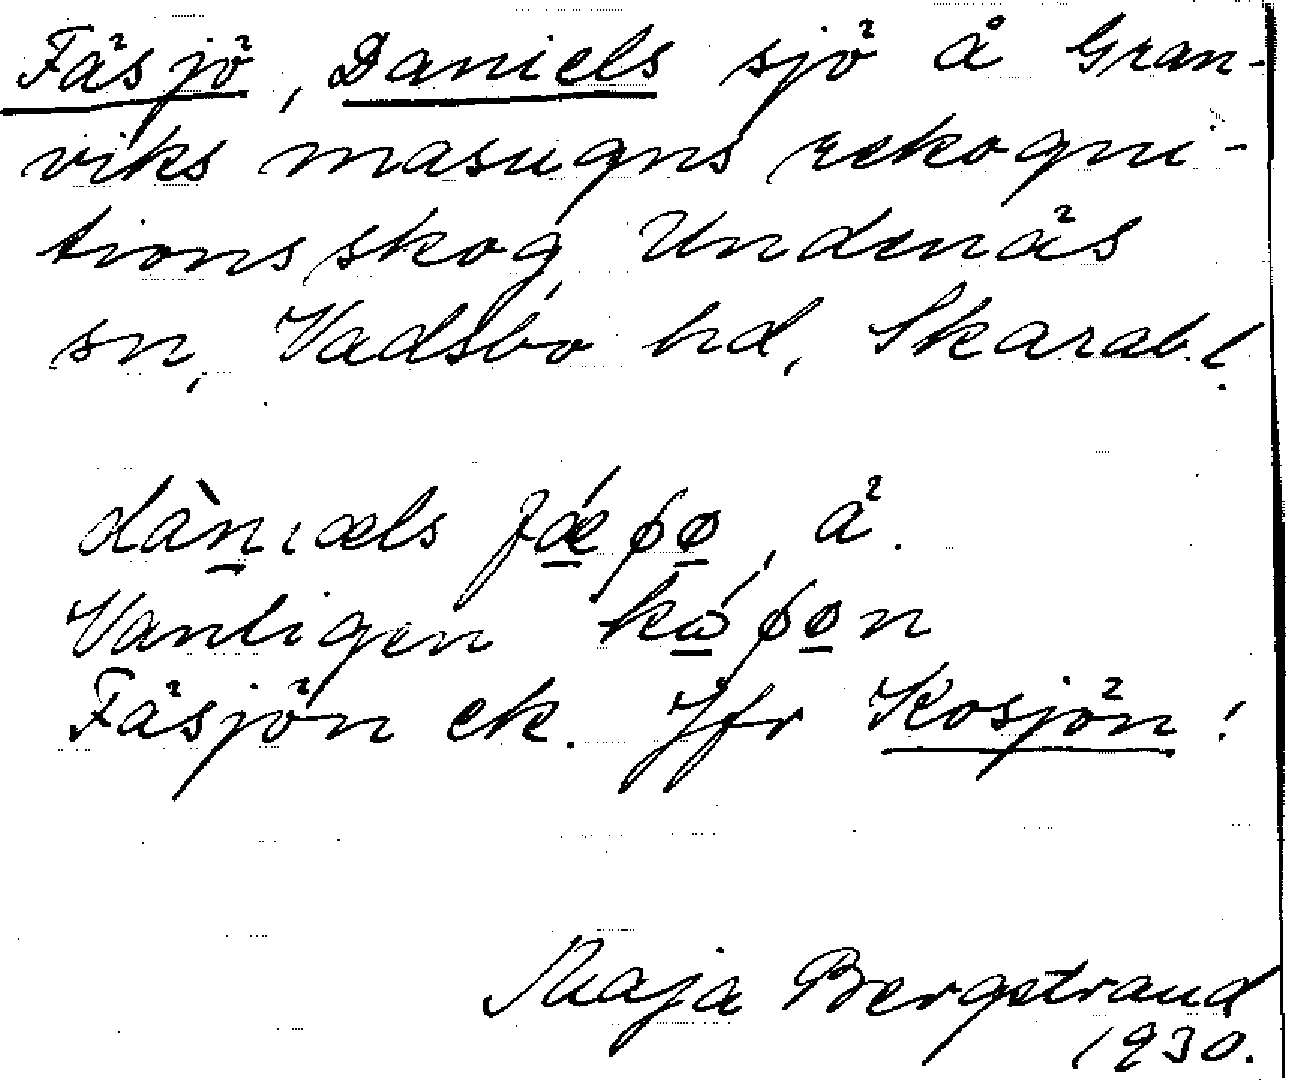 Fäsjö, Daniels sjö å Gran-
viks masugns rekogni-
tionsskog, Undenäs
sn, Vadsbo hd, Skarab. l.
dàniæls fæ´ʃø, ä.
Vanligen kω´ʃøn
Fäsjön ek. Jfr Kosjön!
Maja Bergstrand
1930.